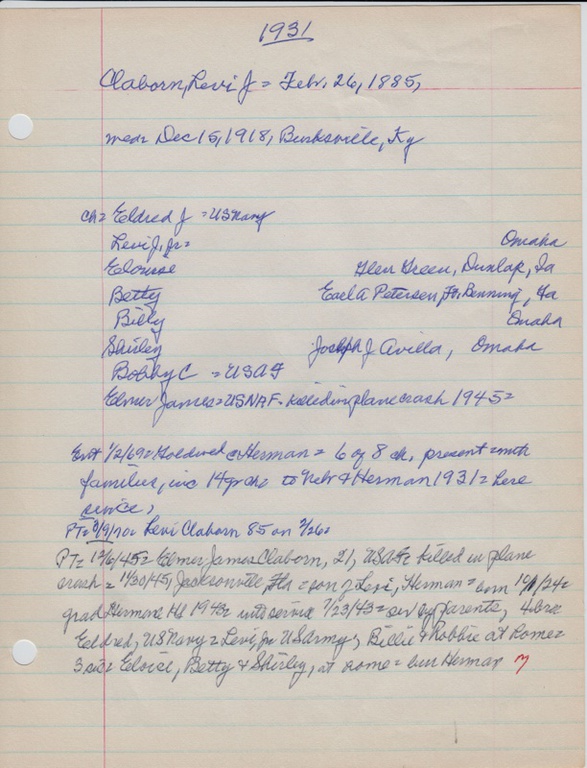 1931
Claborn, Levi J = Feb. 26, 1885,
mar= Dec 15, 1918, Burksville, Ky
ch= Eldred J = US Navy
Levi J, Jr= Omaha
Elouise Glen Green, Dunlap, Ia
Betty Earl A Petersen, Ft. Benning, Ga
Billy Omaha
Shirley Joseph J Avilla, Omaha
Bobby C = USAF
Elmer James = USNAF - killed in plane crash 1945=
Ent 1/2/69= Golden wed @ Herman = 6 of 8 ch, present = with
families, inc 14 gr ch= to Nebr & Herman 1931 = here
since,
PT= 3/9/70= Levi Claborn 85 on 2/26=
PT= 12/6/45= Elmer James Claborn, 21, USAF= killed in plane
crash = 11/30/45, Jacksonville, Fla = son of Levi, Herman = born 10/1/24=
grad Herman HS 1943= into service 7/23/43= sur by parents, 4 bro
Eldred, US Navy = Levi, Jr US Army, Billie & Robbie at home=
3 sis= Eloise, Betty & Shirley, at home = bur Herman